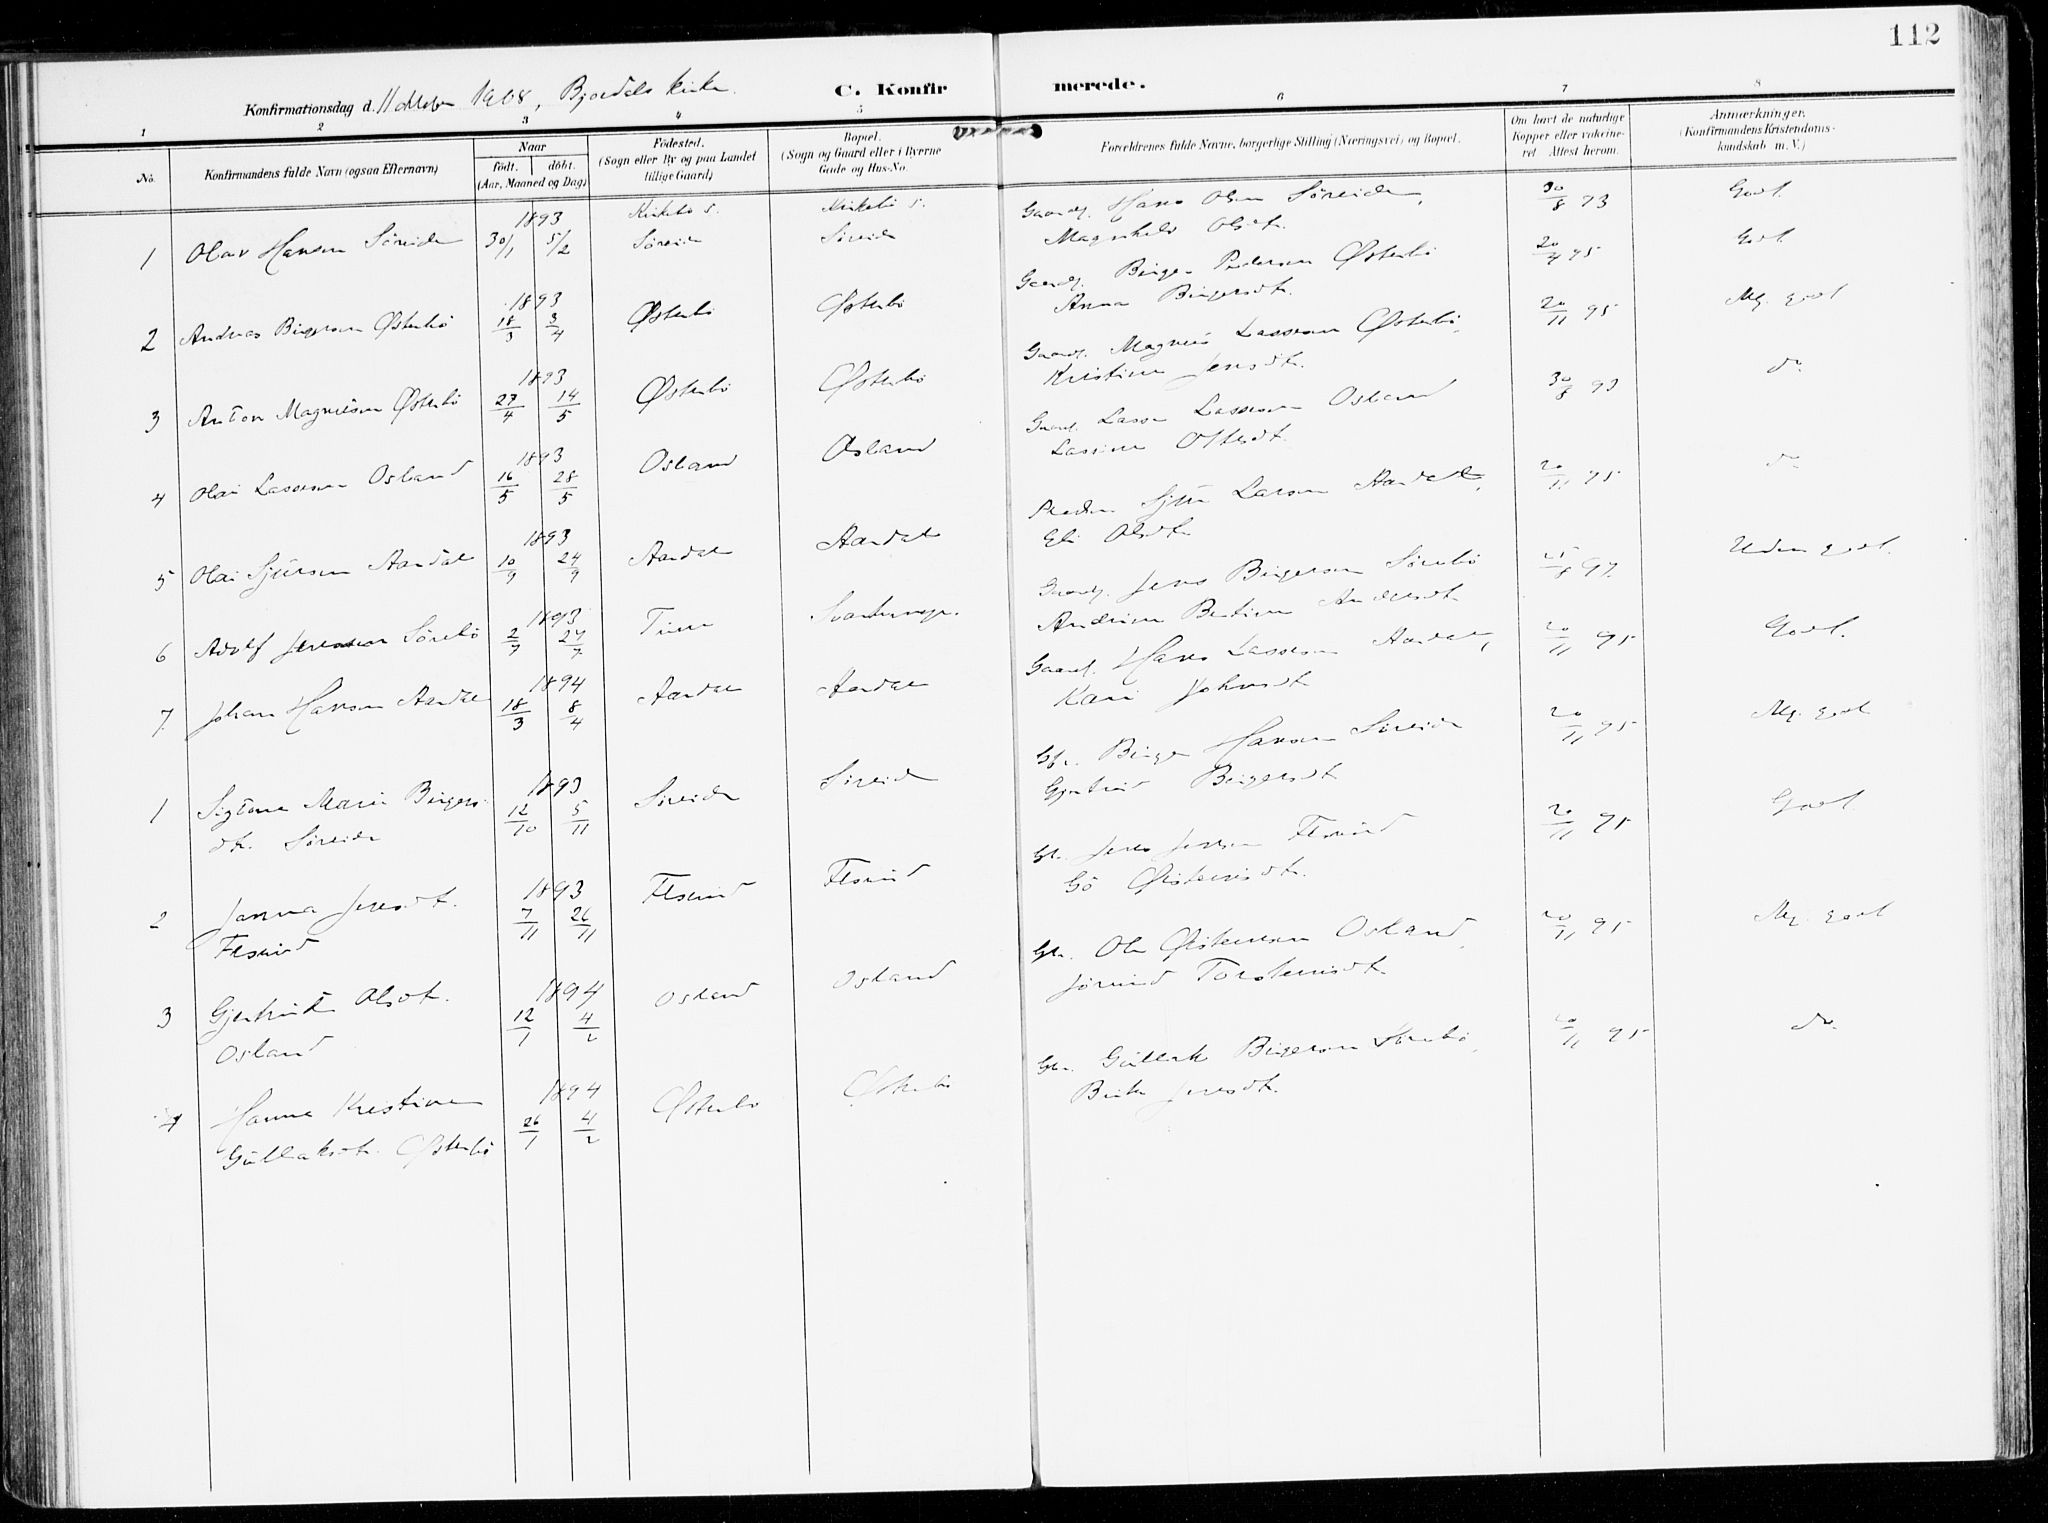 112
Konfirmationsdag d. 11 oktober 1908, Bjordals kirke. C. Konfirmerede.
1 2 3 4 5 6 7 8
No. Konfirmandens fulde Navn (ogsaa Efternavn) Naar födt. döbt. (Aar, Maaned og Dag) Födested. (Sogn eller By og paa Landet tillige Gaard) Bopæl. (Sogn og Gaard eller i Byerne Gade og Hus-No. Forældrenes fulde Navne, borgerlige Stilling (Næringsvei) og Bopæl. Om havt de naturlige Kopper eller vakcineret Attest herom. Anmærkninger. (Konfirmandens Kristendomskundskab m. V.)
1893 Kirkebö s. Kirkebö s. Gaardbr. Hans Olsen Söreide, 30/8 93 Godt.
1 Olav Hansen Söreide 30/1 5/2 Söreide Söreide Magnhild Olsdt.
1893 Gaardbr. Birger Pedersen Østerbö 20/4 95 Godt
2 Andreas Birgersen Østerbö 18/3 3/4 Østerbö Østerbö Anna Birgersdt.
1893 Gaardbr. Magnus Lassesen Østerbö, 20/11 95 Mg. godt
3 Anton Magnusen Østerbö 27/4 14/5 Østerbö Østerbö Kristine Jensdt.
1893 Gaardbr. Lasse Lassesen Osland 30/8 93 do
4 Olai Lassesen Osland 16/5 28/5 Osland Osland Lassine Olsdt.
1893 Sjur Larsen Aardal, 20/11 95 do
5 Olai Sjursen Aardal 10/9 24/9 Aardal Aardal Eli Olsdt.
1893 Gaardbr. Jens Birgersen Sörebö 8 97. Uden godt.
6 Adolf Jensen Sörebö 2/7 27/7 Andrine Bertine Andersdt.
1894 Gaardbr. Hans Lassesen Aardal, 20/11 95 Godt.
7. Johan Hansen Aardal 18/3 8/4 Aardal Aardal Kari Johnsdt.
1893 Gbr. Birger Hansen Söreide 20/11 95 Mg. godt
1 Maria Birgersdt. Söreide 12/10 5/11 Söreide Söreide Gjertrud Birgersdt.
1893 Gbr. Jens Jensen Flesund 20/11 95 Godt.
2 Janna Jensdt. Flesund 7/11 26/11 Flesund Flesund Gö Østensdt.
1894 Gbr. Ole Østensen Osland, 20/11 95 Mg. godt
3 Gjertrud Olsdt. Osland 12/1 4/2 Osland Osland Jörund Torsteinsdt.
1894 Gbr. Gullak Birgersen Sörebö, 20/11 95 do.
4 Hanna Kristine Gullaksdt. Østerbö 26/1 4/2 Østerbö Østerbö Jensdt.